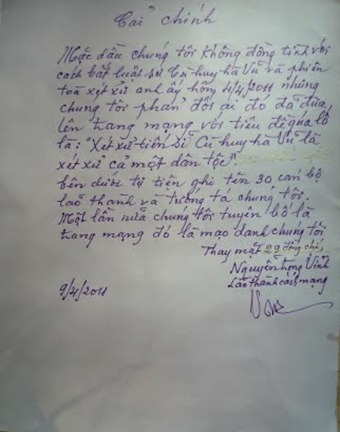 Cải chính
Mặc dầu chúng tôi không đồng tình với
cách bắt luật sư Cù huy hà Vũ và phiên
toà xét xử anh ấy hôm 4/4/2011 nhưng
chúng tôi phản đối ai đó đã đưa
lên trang mạng với tiêu đề quá lố
là: "Xét xử tiến sĩ Cù huy hà Vũ là
xét xử cả một dân tộc".
bên dưới tự tiện ghi tên 30 cán bộ
lão thành và tướng tá chúng tôi.
Một lần nữa chúng tôi tuyên bố là
trang mạng đó là mạo danh chúng tôi
Thay mặt 29 đồng chí,
Nguyễn trọng Vĩnh
Lão thành cách mạng
9/4/2011